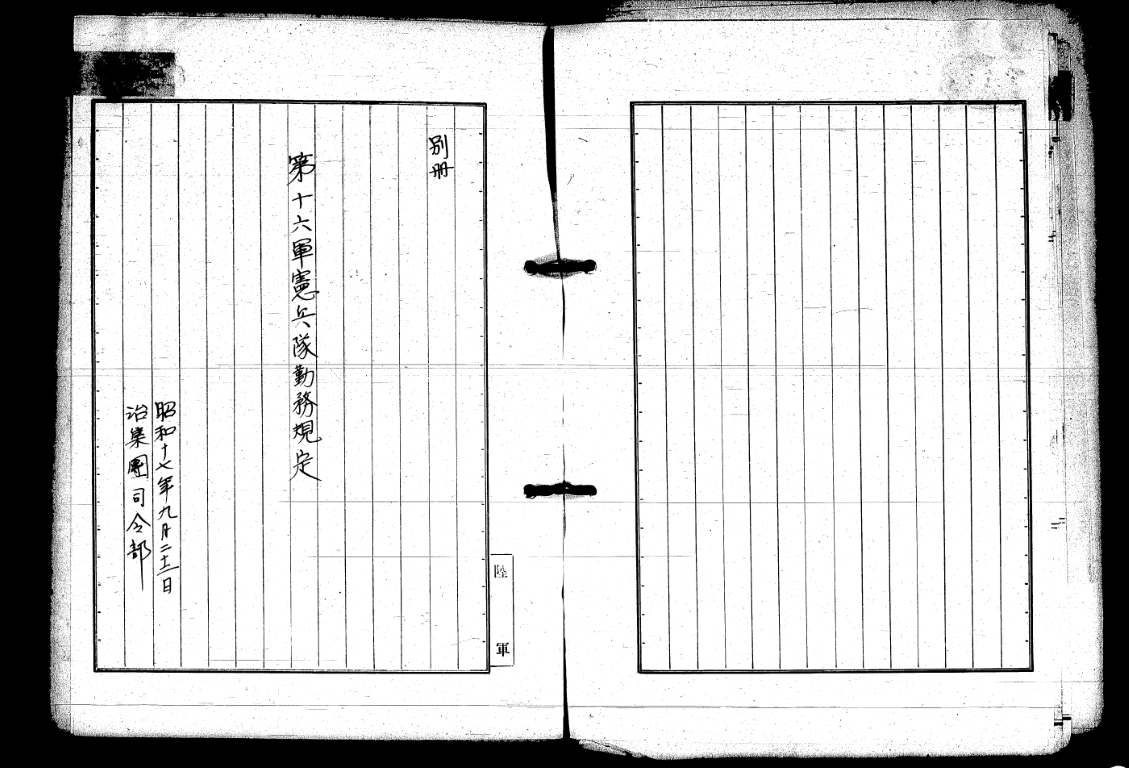 別冊
第十六軍憲兵隊勤務規定
昭和十七年九月二十二日
治集團司令部
陸軍